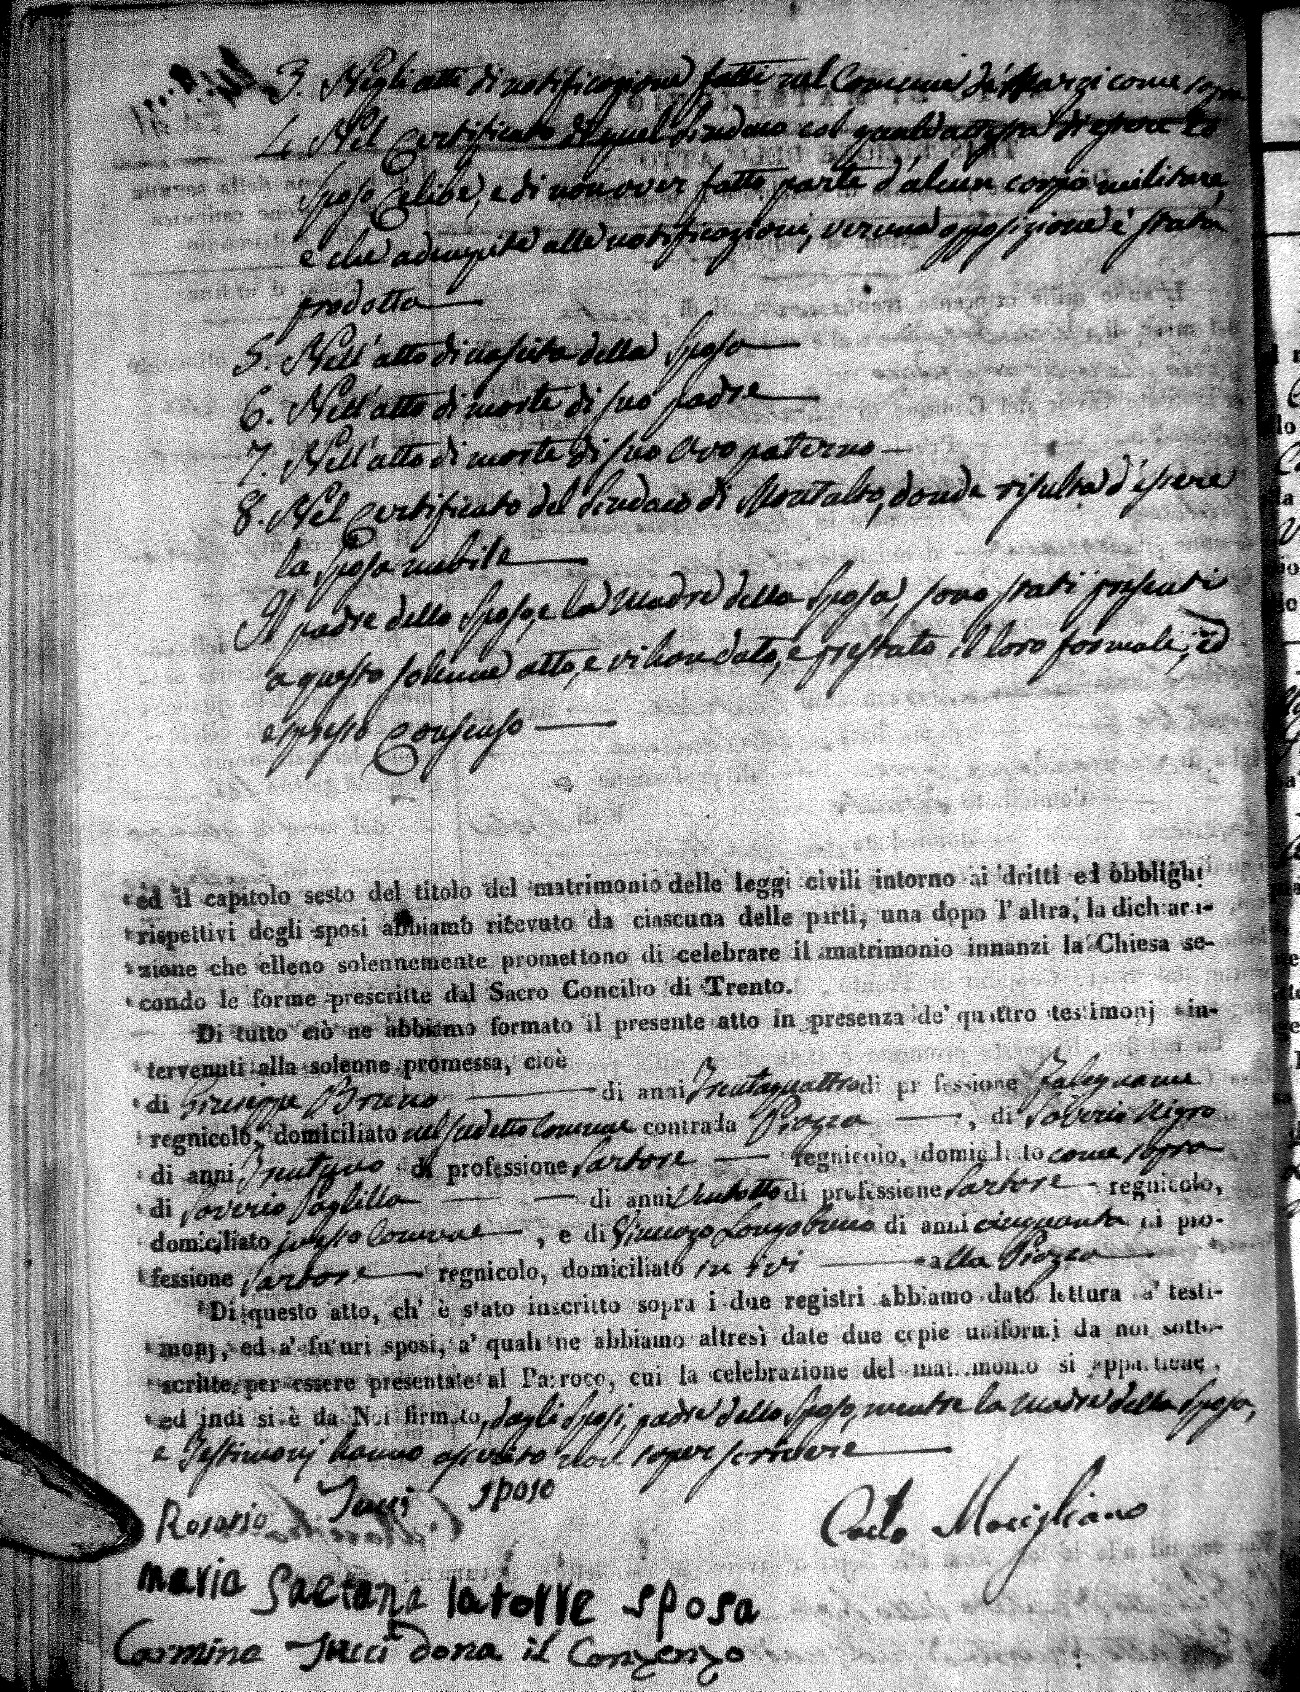 3. Negli atti di notificazione fatti nel Comune di Marzi come sopra
4. Nel Certificato di quel Sindaco col quale attesta di essere lo
sposo Celibe, e di non aver fatto parte d'alcun corpo militare,
e che adempite alle notificazioni, veruna opposizione è stata
prodotta
5. Nell'atto di nascita della Sposa
6. Nell'atto di morte di suo padre
7. Nell'atto di morte di suo Avo paterno
8. Nel Certificato del Sindaco di Montalto, donde risulta d'essere
la Sposa nubile
Il padre dello Sposo, e la Madre della Sposa, sono stati presenti
a questo solenne atto, e vi han dato, e prestato il loro formale, ed
espresso Consenso
ed il capitolo sesto del titolo del matrimonio delle leggi civili intorno ai dritti ed obblighi
rispettivi degli sposi abbiamo ricevuto da ciascuna delle parti, una dopo l'altra, la dichiara-
zione che elleno solennemente promettono di celebrare il matrimonio innanzi la Chiesa se-
condo le forme prescritte dal Sacro Concilio di Trento.
Di tutto ciò ne abbiamo formato il presente atto in presenza de' quattro testimonj in-
tervenuti alla solenne promessa, cioè
di Giuseppe Bruno di anni trentaquattro di professione Falegname
regnicolo, domiciliato nel sudetto Comune contrada Piazza, di Saverio Nigro
di anni Trentuno di professione Sartore regnicolo, domiciliato come sopra
di Saverio di anni Ventotto di professione Sartore regnicolo,
domiciliato Comune, e di Longobuco di anni cinquanta di pro-
fessione Sartore regnicolo, domiciliato in ivi alla Piazza
Di questo atto, ch' è stato inscritto sopra i due registri abbiamo dato lettura a' testi-
monj, ed a' futuri sposi, a' quali ne abbiamo altresì date due copie uniformi da noi sotto-
scritte per essere presentate al Parroco, cui la celebrazione del matrimonio si appartiene,
ed indi si è da Noi firmato, dagli Sposi, padre dello Sposo, mentre la Madre della Sposa,
e Testimonj hanno asserito non saper scrivere
Rosario Tucci sposo
Carlo Marigliano
maria Gaetana latorre sposa
Carmine Tucci dona il Conzenzo